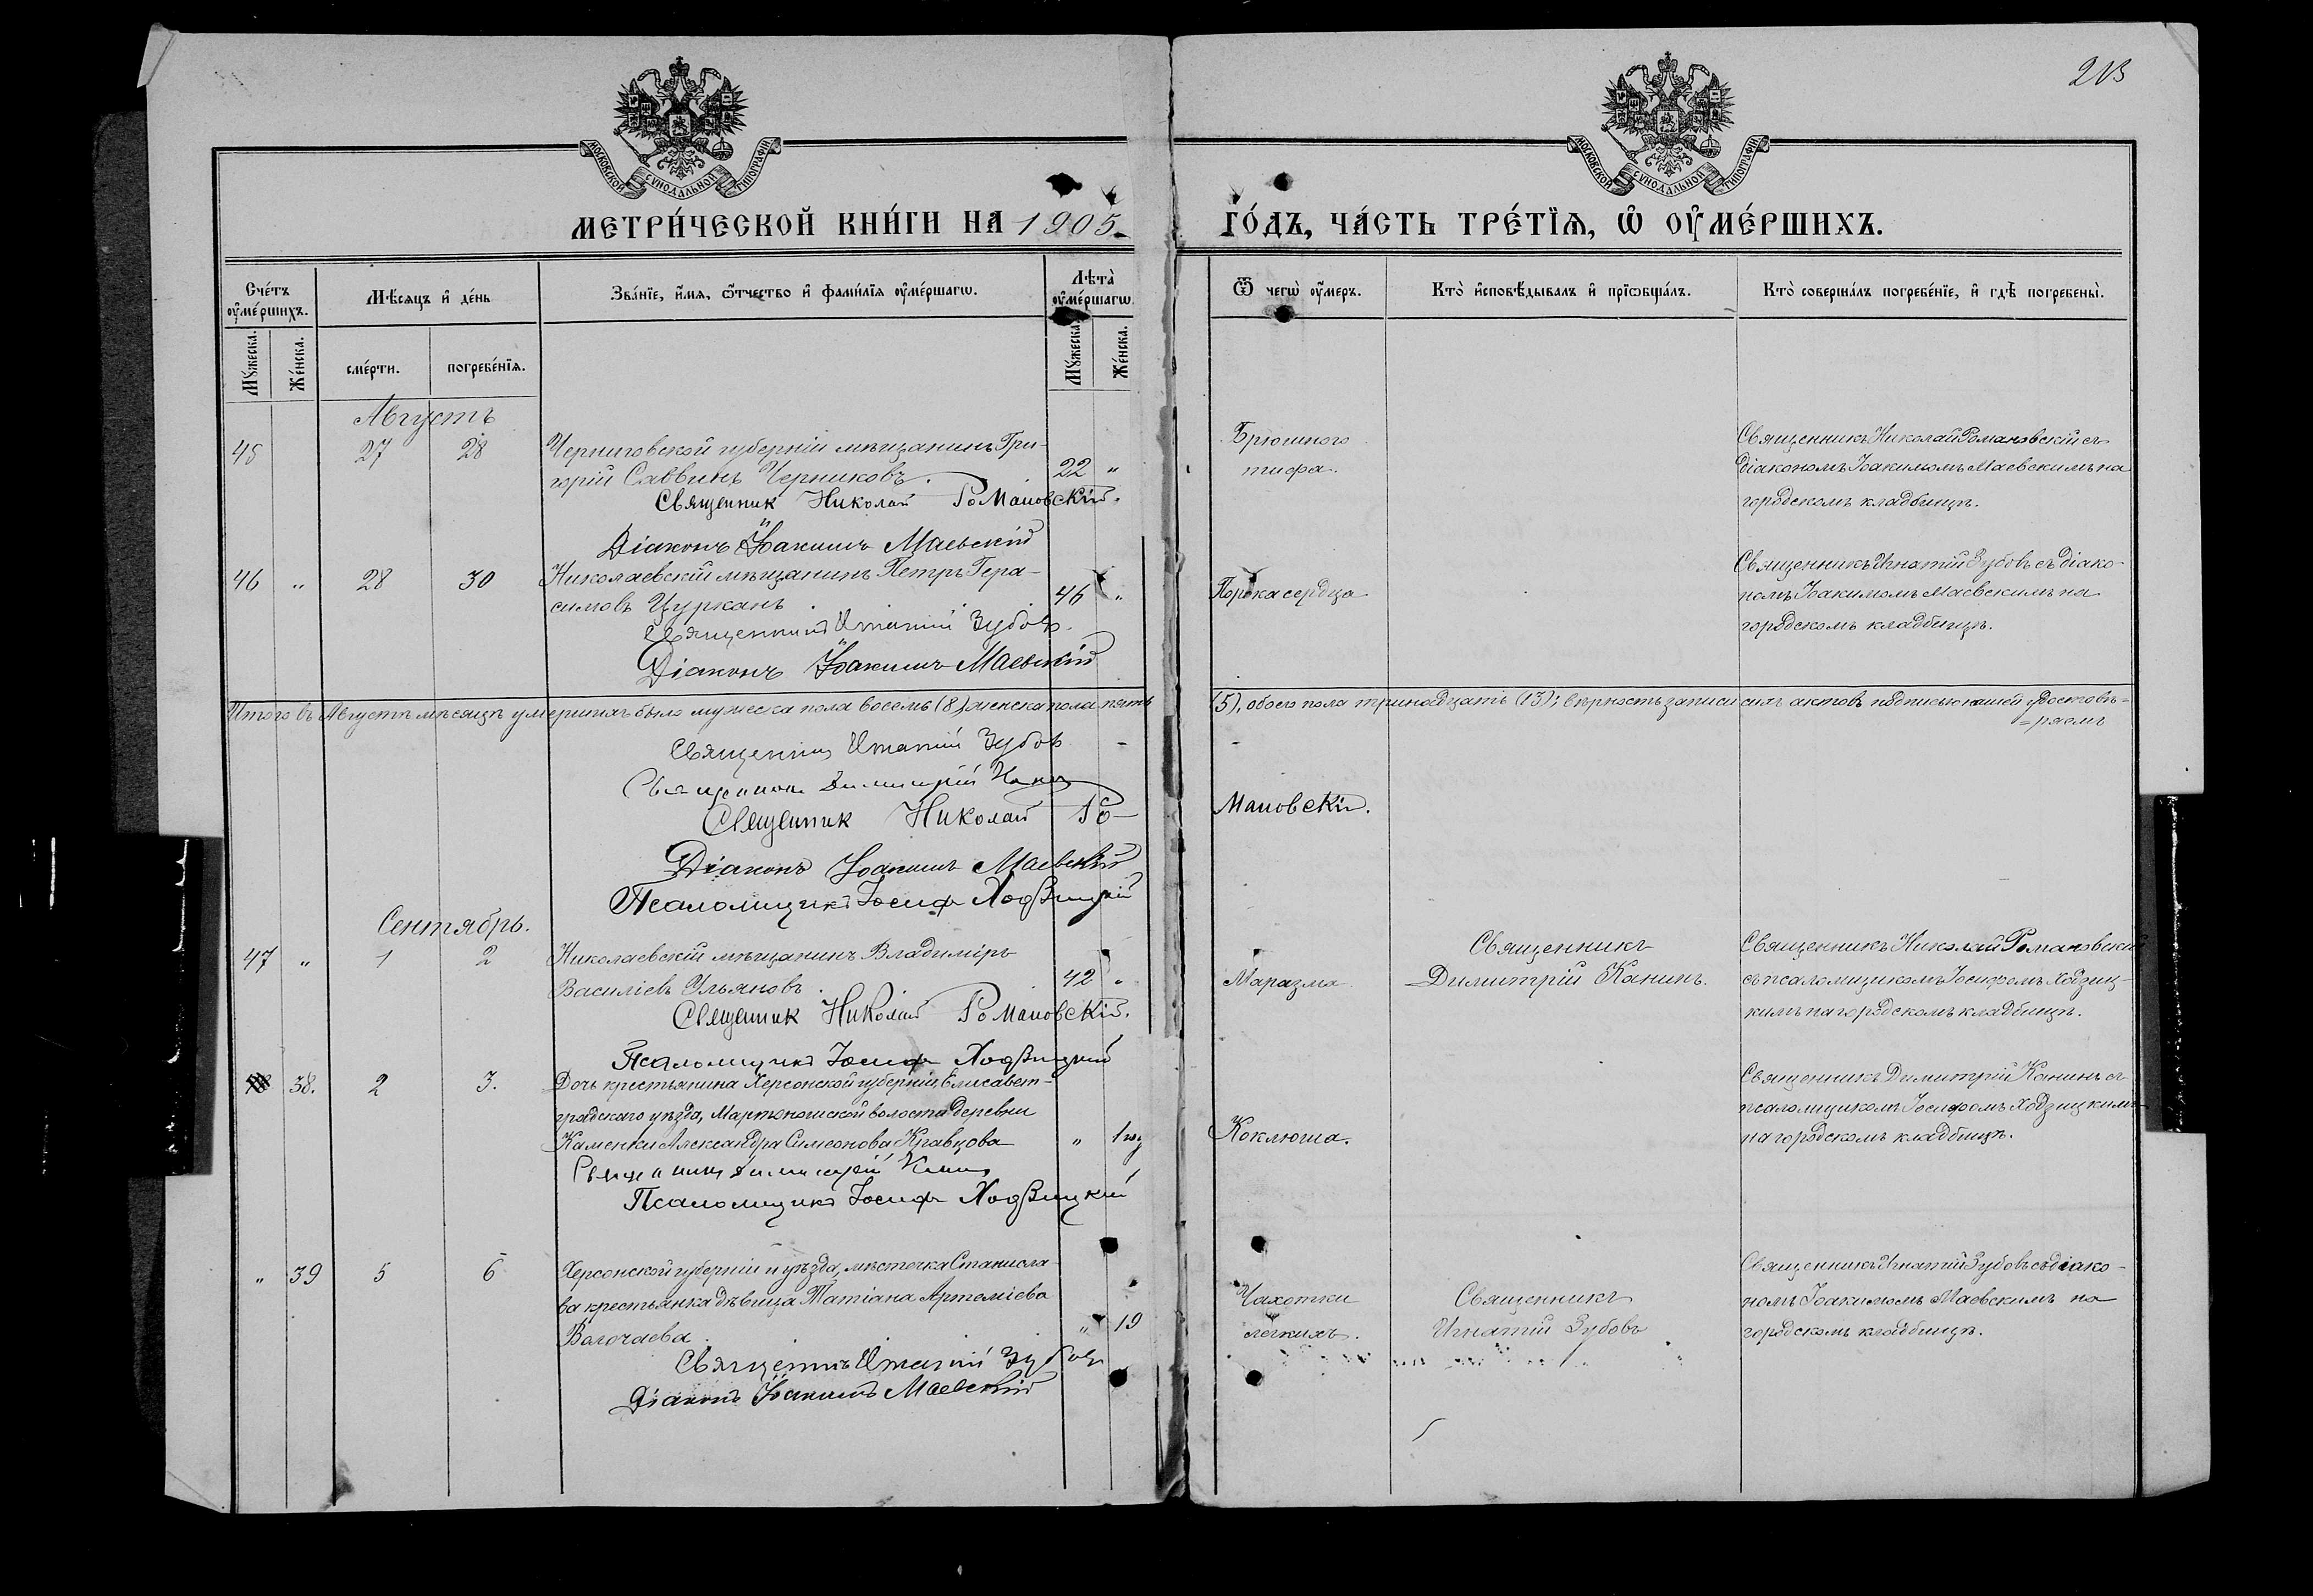 213
МОСКОВСКОЙ СѴНОДАЛЬНОЙ ТИПОГРАФІИ
МОСКОВСКОЙ СѴНОДАЛЬНОЙ ТИПОГРАФІИ
МЕТРИ́ЧЕСКОЙ КНИ́ГИ НА 1905
ГО́ДЪ, ЧА́СТЬ ТРЕ́ТЇѦ, Ѡ҆ ОУ҆МЕ́РШИХЪ.
Сче́тъ оу҆ме́ршихъ.
Мѣ́сѧцъ и҆ де́нь
Зва́нїе, и҆́мѧ, ѻ҆́тчество и҆ фами́лїѧ оу҆ме́ршагѡ.
Лѣта̀ оу҆ме́ршагѡ.
Ѿ чегѡ̀ оу҆́меръ.
Кто̀ и҆сповѣ́дывалъ и҆ прїѡбща́лъ.
Кто̀ соверша́лъ погребе́нїе, и҆ гдѣ̀ погребены̀.
Мꙋ́жеска.
Же́нска.
сме́рти.
погребе́нїѧ.
Мꙋ́жеска.
Же́нска.
Августъ
45 27 28 Черниговской губерніи мѣщанинъ Гри-
горій Саввинъ Черниковъ. 22 "
Священник Николай Романовскій.
Діаконъ Іоакимъ Маевскій
Брюшного
тифа.
Священникъ Николай Романовскій съ
діакономъ Іоакимомъ Маевскимъ на
городскомъ кладбищѣ.
46 " 28 30 Николаевскій мѣщанинъ Петръ Гера-
симовъ Цурканъ. 46 "
Священникъ Игнатій Зубовъ.
Діаконъ Іоакимъ Маевскій
Порока сердца
Священникъ Игнатій Зубовъ съ діако-
номъ Іоакимомъ Маевскимъ на
городскомъ кладбищѣ.
Итого въ Августѣ мѣсяцѣ умершихъ было мужеска пола восемь (8), женска пола пять (5), обоего пола тринадцать (13); вѣрность записи сихъ актовъ подписью нашей удостовѣ=
=ряемъ
Священникъ Игнатій Зубовъ
Священникъ Димитрій Канинъ
Священник Николай Ро-
мановскій.
Діаконъ Іоакимъ Маевскій
Псаломщикъ Іосифъ Ходзицкій
Сентябрь.
47 " 1 2 Николаевскій мѣщанинъ Владиміръ
Василіевъ Ульяновъ. 42 "
Священник Николай Романовскій.
Псаломщикъ Іосифъ Ходзицкій
Маразма
Священникъ
Димитрій Канинъ.
Священникъ Николай Романовскій
съ псаломщикомъ Іосифомъ Ходзиц-
кимъ на городскомъ кладбищѣ.
38. 2 3. Дочь крестьянина Херсонской губерніи, Елисавет-
градскаго уѣзда, Мартоношской волости деревни
Каменки Александра Симеонова Кравцова " 1 год
Священникъ Димитрій Канинъ
Псаломщикъ Іосифъ Ходзицкій
Коклюша.
Священникъ Димитрій Канинъ съ
псаломщикомъ Іосифомъ Ходзицкимъ
на городскомъ кладбищѣ.
" 39 5 6 Херсонской губерніи и уѣзда, мѣстечка Станисла-
ва крестьянка дѣвица Татіана Артеміева
" 19
Священникъ Игнатій Зубовъ
Діаконъ Іоакимъ Маевскій
Чахотки
легкихъ.
Священникъ
Игнатій Зубовъ
Священникъ Игнатій Зубовъ съ діако-
номъ Іоакимомъ Маевскимъ на
городскомъ кладбищѣ.